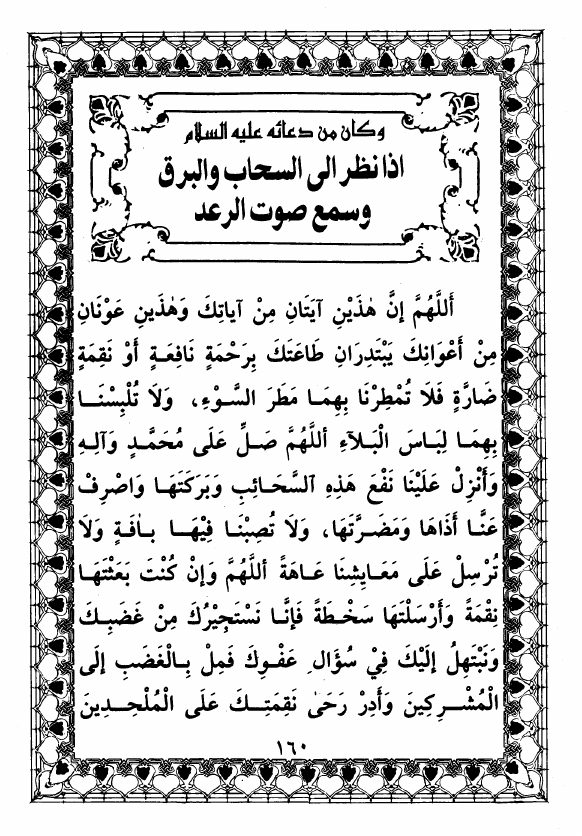 وكان من دعائه عليه السلام
اذا نظر الى السحاب والبرق
وسمع صوت الرعد
أَللَّهُمَّ إِنَّ هٰذَيْنِ آيَتَانِ مِنْ آيَاتِكَ وَهٰذَينِ عَوْنَانِ
مِنْ أَعْوَانِكَ يَبْتَدِرَانِ طَاعَتَكَ بِرَحْمَةٍ نَافِعَةٍ أَوْ نَقِمَةٍ
ضَارَّةٍ فَلَا تُمْطِرْنَا بِهِمَا مَطَرَ السَّوْءِ، وَلَا تُلْبِسْنَا
بِهِمَا لِبَاسَ الْبَلَاءِ أللَّهُمَّ صَلِّ عَلَى مُحَمَّدٍ وَآلِهِ
وَأَنْزِلْ عَلَيْنَا نَفْعَ هَذِهِ السَّحَائِبِ وَبَرَكَتَهَا وَاصْرِفْ
عَنَّا أَذَاهَا وَمَضَرَّتَهَا، وَلَا تُصِبْنَا فِيْهَا بِآفَةٍ وَلَا
تُرْسِلْ عَلَى مَعَايِشِنَا عَاهَةً أللَّهُمَّ وَإِنْ كُنْتَ بَعَثْتَهَا
نِقْمَةً وَأَرْسَلْتَهَا سَخْطَةً فَإِنَّا نَسْتَجِيْرُكَ مِنْ غَضَبِكَ
وَنَبْتَهِلُ إِلَيْكَ فِيْ سُؤَالِ عَفْوِكَ فَمِلْ بِالْغَضَبِ إِلَى
الْمُشْرِكِينَ وَأَدِرْ رَحَىٰ نَقِمَتِكَ عَلَى الْمُلْحِدِينَ
١٦٠